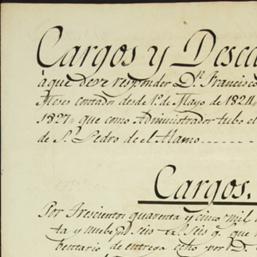 Cargos y Desca
à que deve responder Dn. Francisco
Flores contador desde 1º de Mayo de 1824
1827, que como Administrador tubo el
de Sn. Pedro de el Alamo
Cargos.
Por trescientos quarenta y cinco mil
ta y nuebe ps. rls. q. que
bentario de entrega por D.